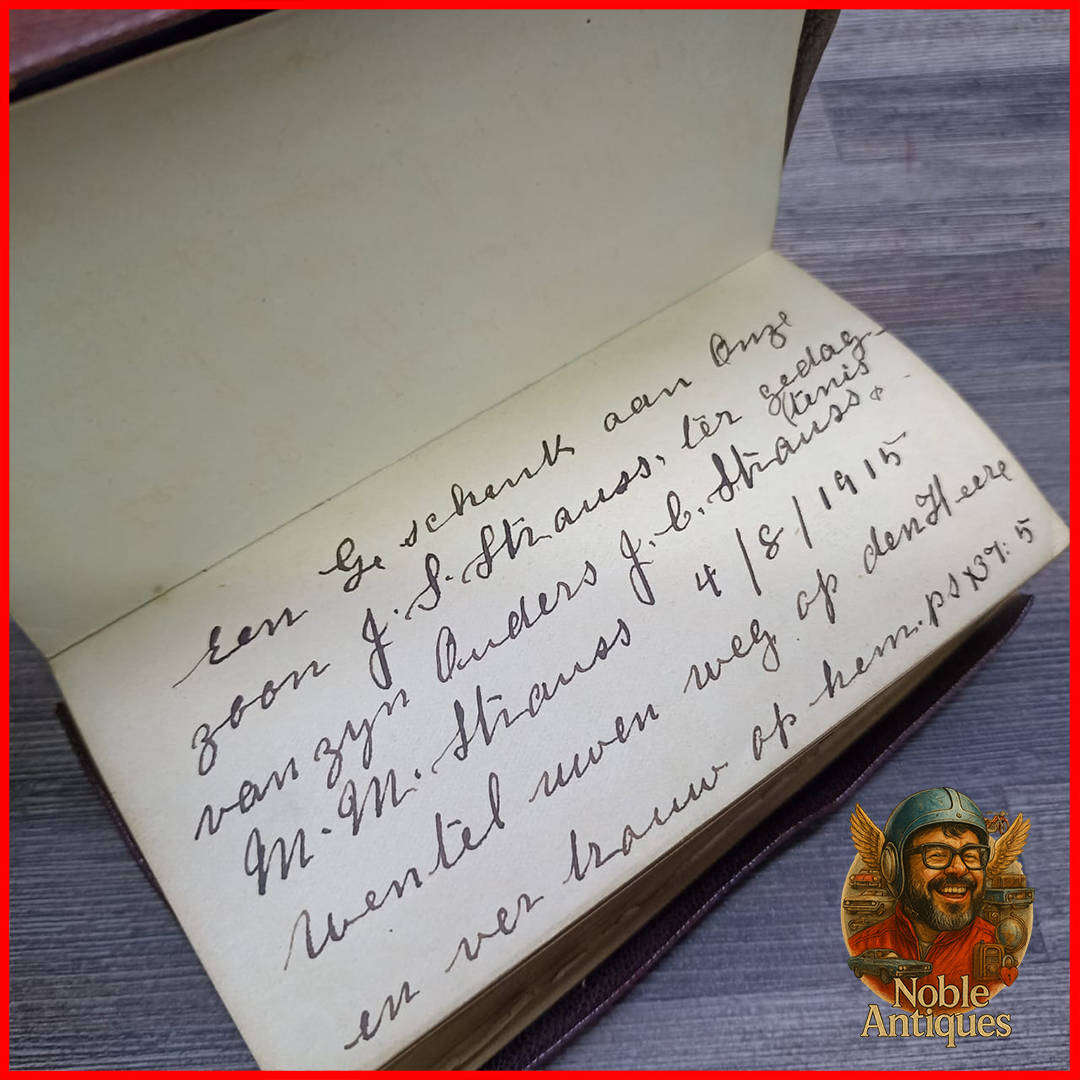 Een Geschenk aan Onze
zoon J. S. Strauss, ter gedag-
tenis
van zyn Ouders J. C. Strauss &
M. M. Strauss 4/8/1915
Wentel uwen weg op den Heere
en ver trouw op hem. ps x37:5
Noble
Antiques